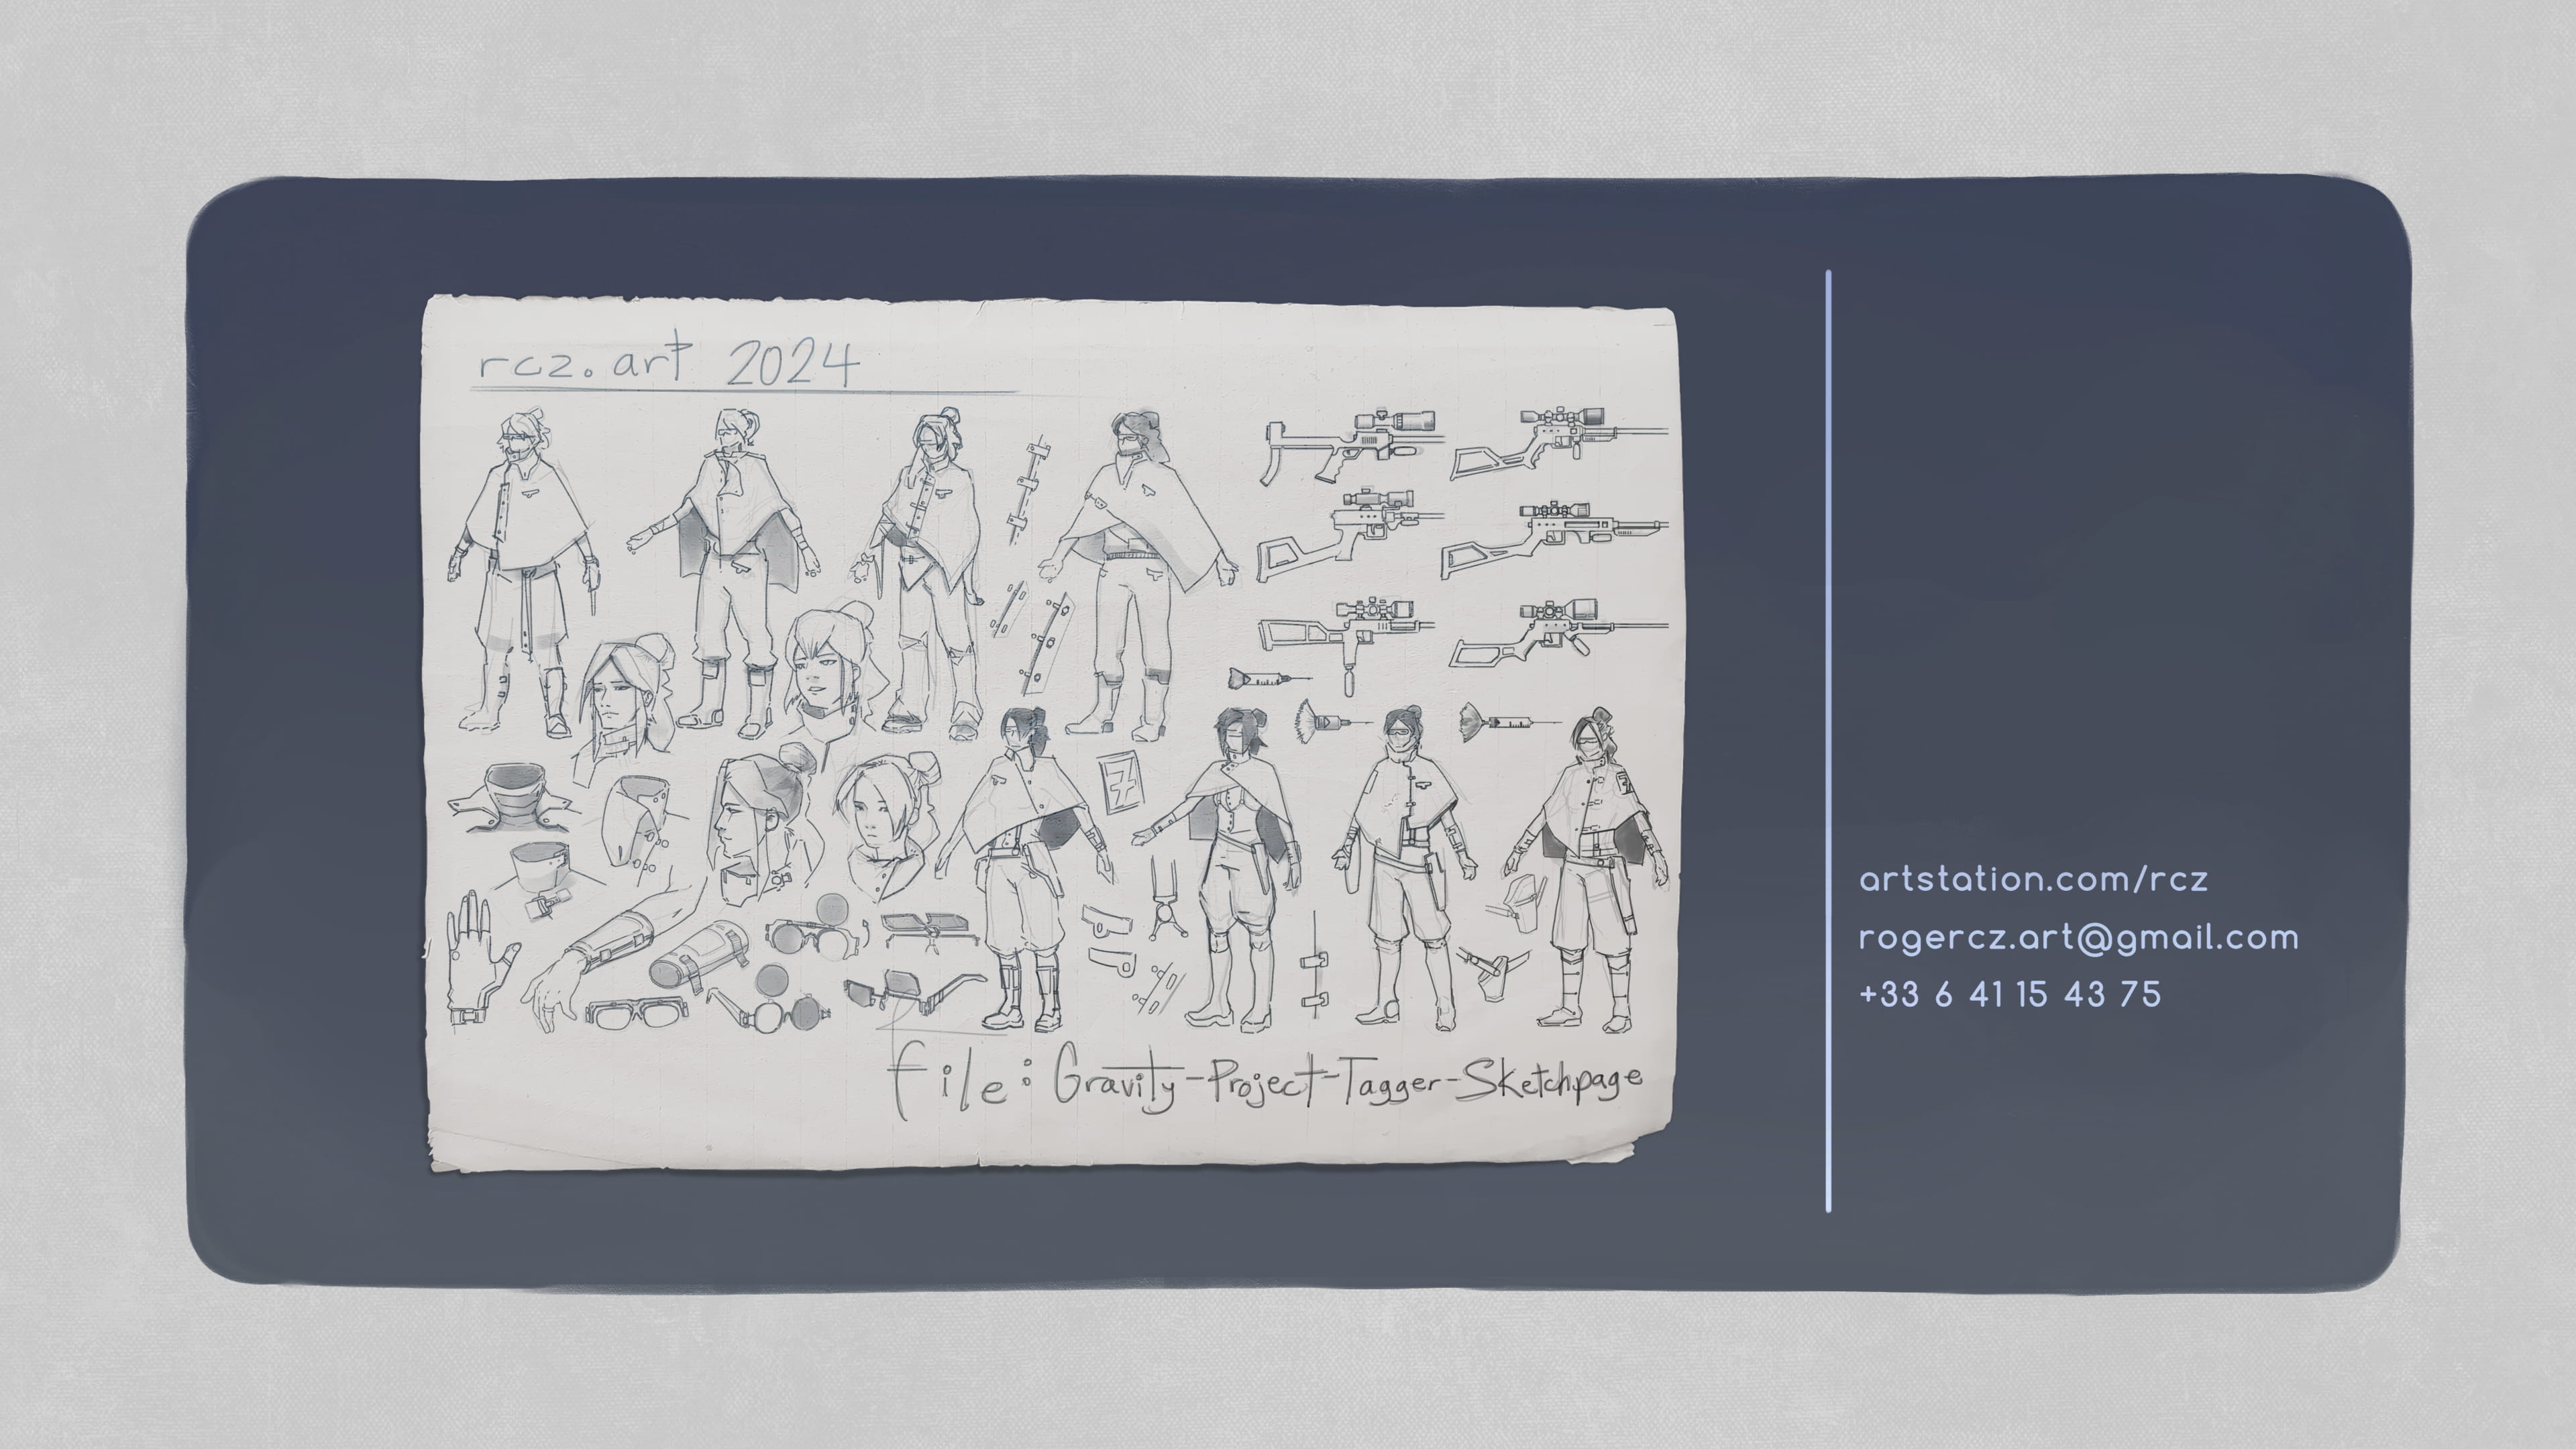 rcz.art 2024
7
file: Gravity-Project-Tagger-Sketchpage
artstation.com/rcz
rogercz.art@gmail.com
+33 6 41 15 43 75